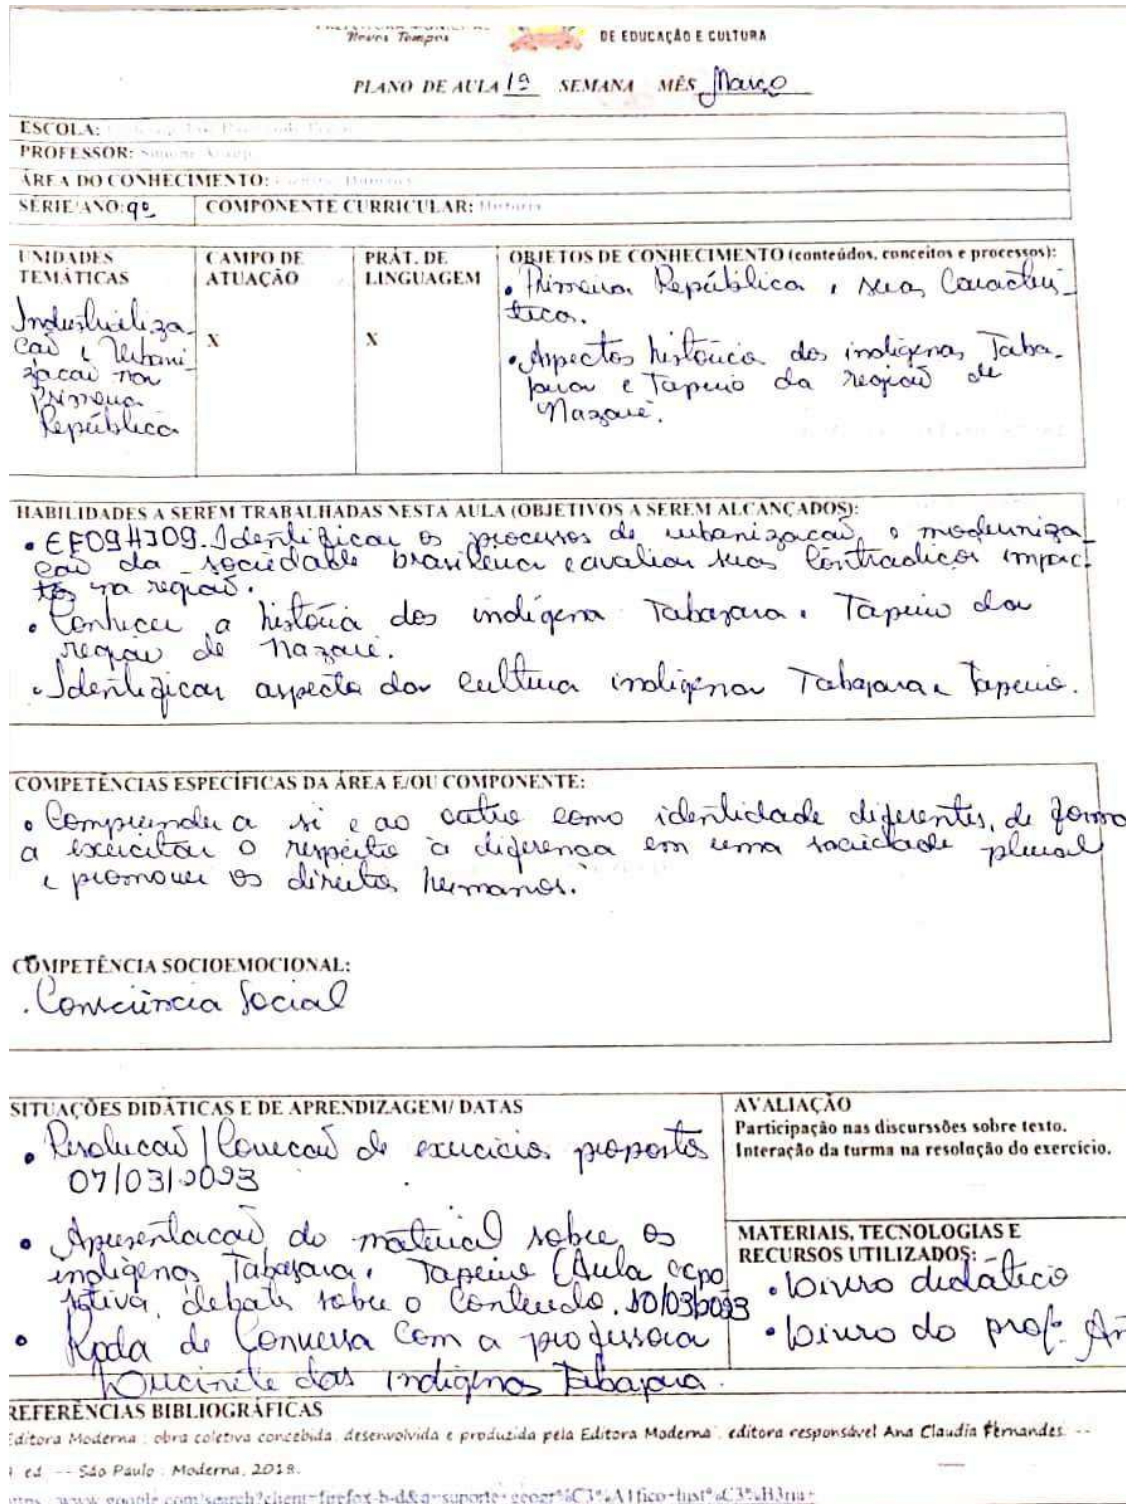 Novos Tempos
DE EDUCAÇÃO E CULTURA
PLANO DE AULA 1ª SEMANA MÊS Março
ESCOLA:
PROFESSOR:
ÁREA DO CONHECIMENTO:
SÉRIE/ANO: 9º COMPONENTE CURRICULAR: História
UNIDADES
TEMÁTICAS
Industrializa-
ção e Urbani-
zação na
Primeira
República
CAMPO DE
ATUAÇÃO
X
PRÁT. DE
LINGUAGEM
X
OBJETOS DE CONHECIMENTO (conteúdos, conceitos e processos):
• Primeira República e suas Caracterís-
tica.
• Aspectos histórico dos indígenas Taba-
jara e Tapuio da região de
Nazaré.
HABILIDADES A SEREM TRABALHADAS NESTA AULA (OBJETIVOS A SEREM ALCANÇADOS):
• EF09HI09. Identificar os processos de urbanização e moderniza
ção da sociedade brasileira e avaliar suas Contradições impac
tos na região.
• Conhecer a história dos indígena Tabajara e Tapuio da
região de Nazaré.
• Identificar aspecto da cultura indígena Tabajara e Tapuio.
COMPETÊNCIAS ESPECÍFICAS DA ÁREA E/OU COMPONENTE:
• Compreender a si e ao outro como identidade diferentes, de forma
a exercitar o respeito à diferença em uma sociedade plural
e promover os direitos humanos.
COMPETÊNCIA SOCIOEMOCIONAL:
. Consciência Social
SITUAÇÕES DIDÁTICAS E DE APRENDIZAGEM/ DATAS
• Resolução / Correção de exercícios propostos
07/03/2023
• Apresentação do material sobre os
indígenas Tabajara e Tapuio (Aula expo
sitiva, debate sobre o Conteúdo. 10/03/2023
• Roda de Conversa Com a professora
Lucinete dos Indígenas Tabajara.
AVALIAÇÃO
Participação nas discurssões sobre texto.
Interação da turma na resolução do exercício.
MATERIAIS, TECNOLOGIAS E
RECURSOS UTILIZADOS:
• Livro didático
• Livro do profº
REFERÊNCIAS BIBLIOGRÁFICAS
Editora Moderna : obra coletiva concebida, desenvolvida e produzida pela Editora Moderna ; editora responsável Ana Claudia Fernandes. --
ed. -- São Paulo : Moderna, 2018.
https://www.google.com/search?client=firefox-b-d&q=suporte+geogr%C3%A1fico+hist%C3%B3ria+